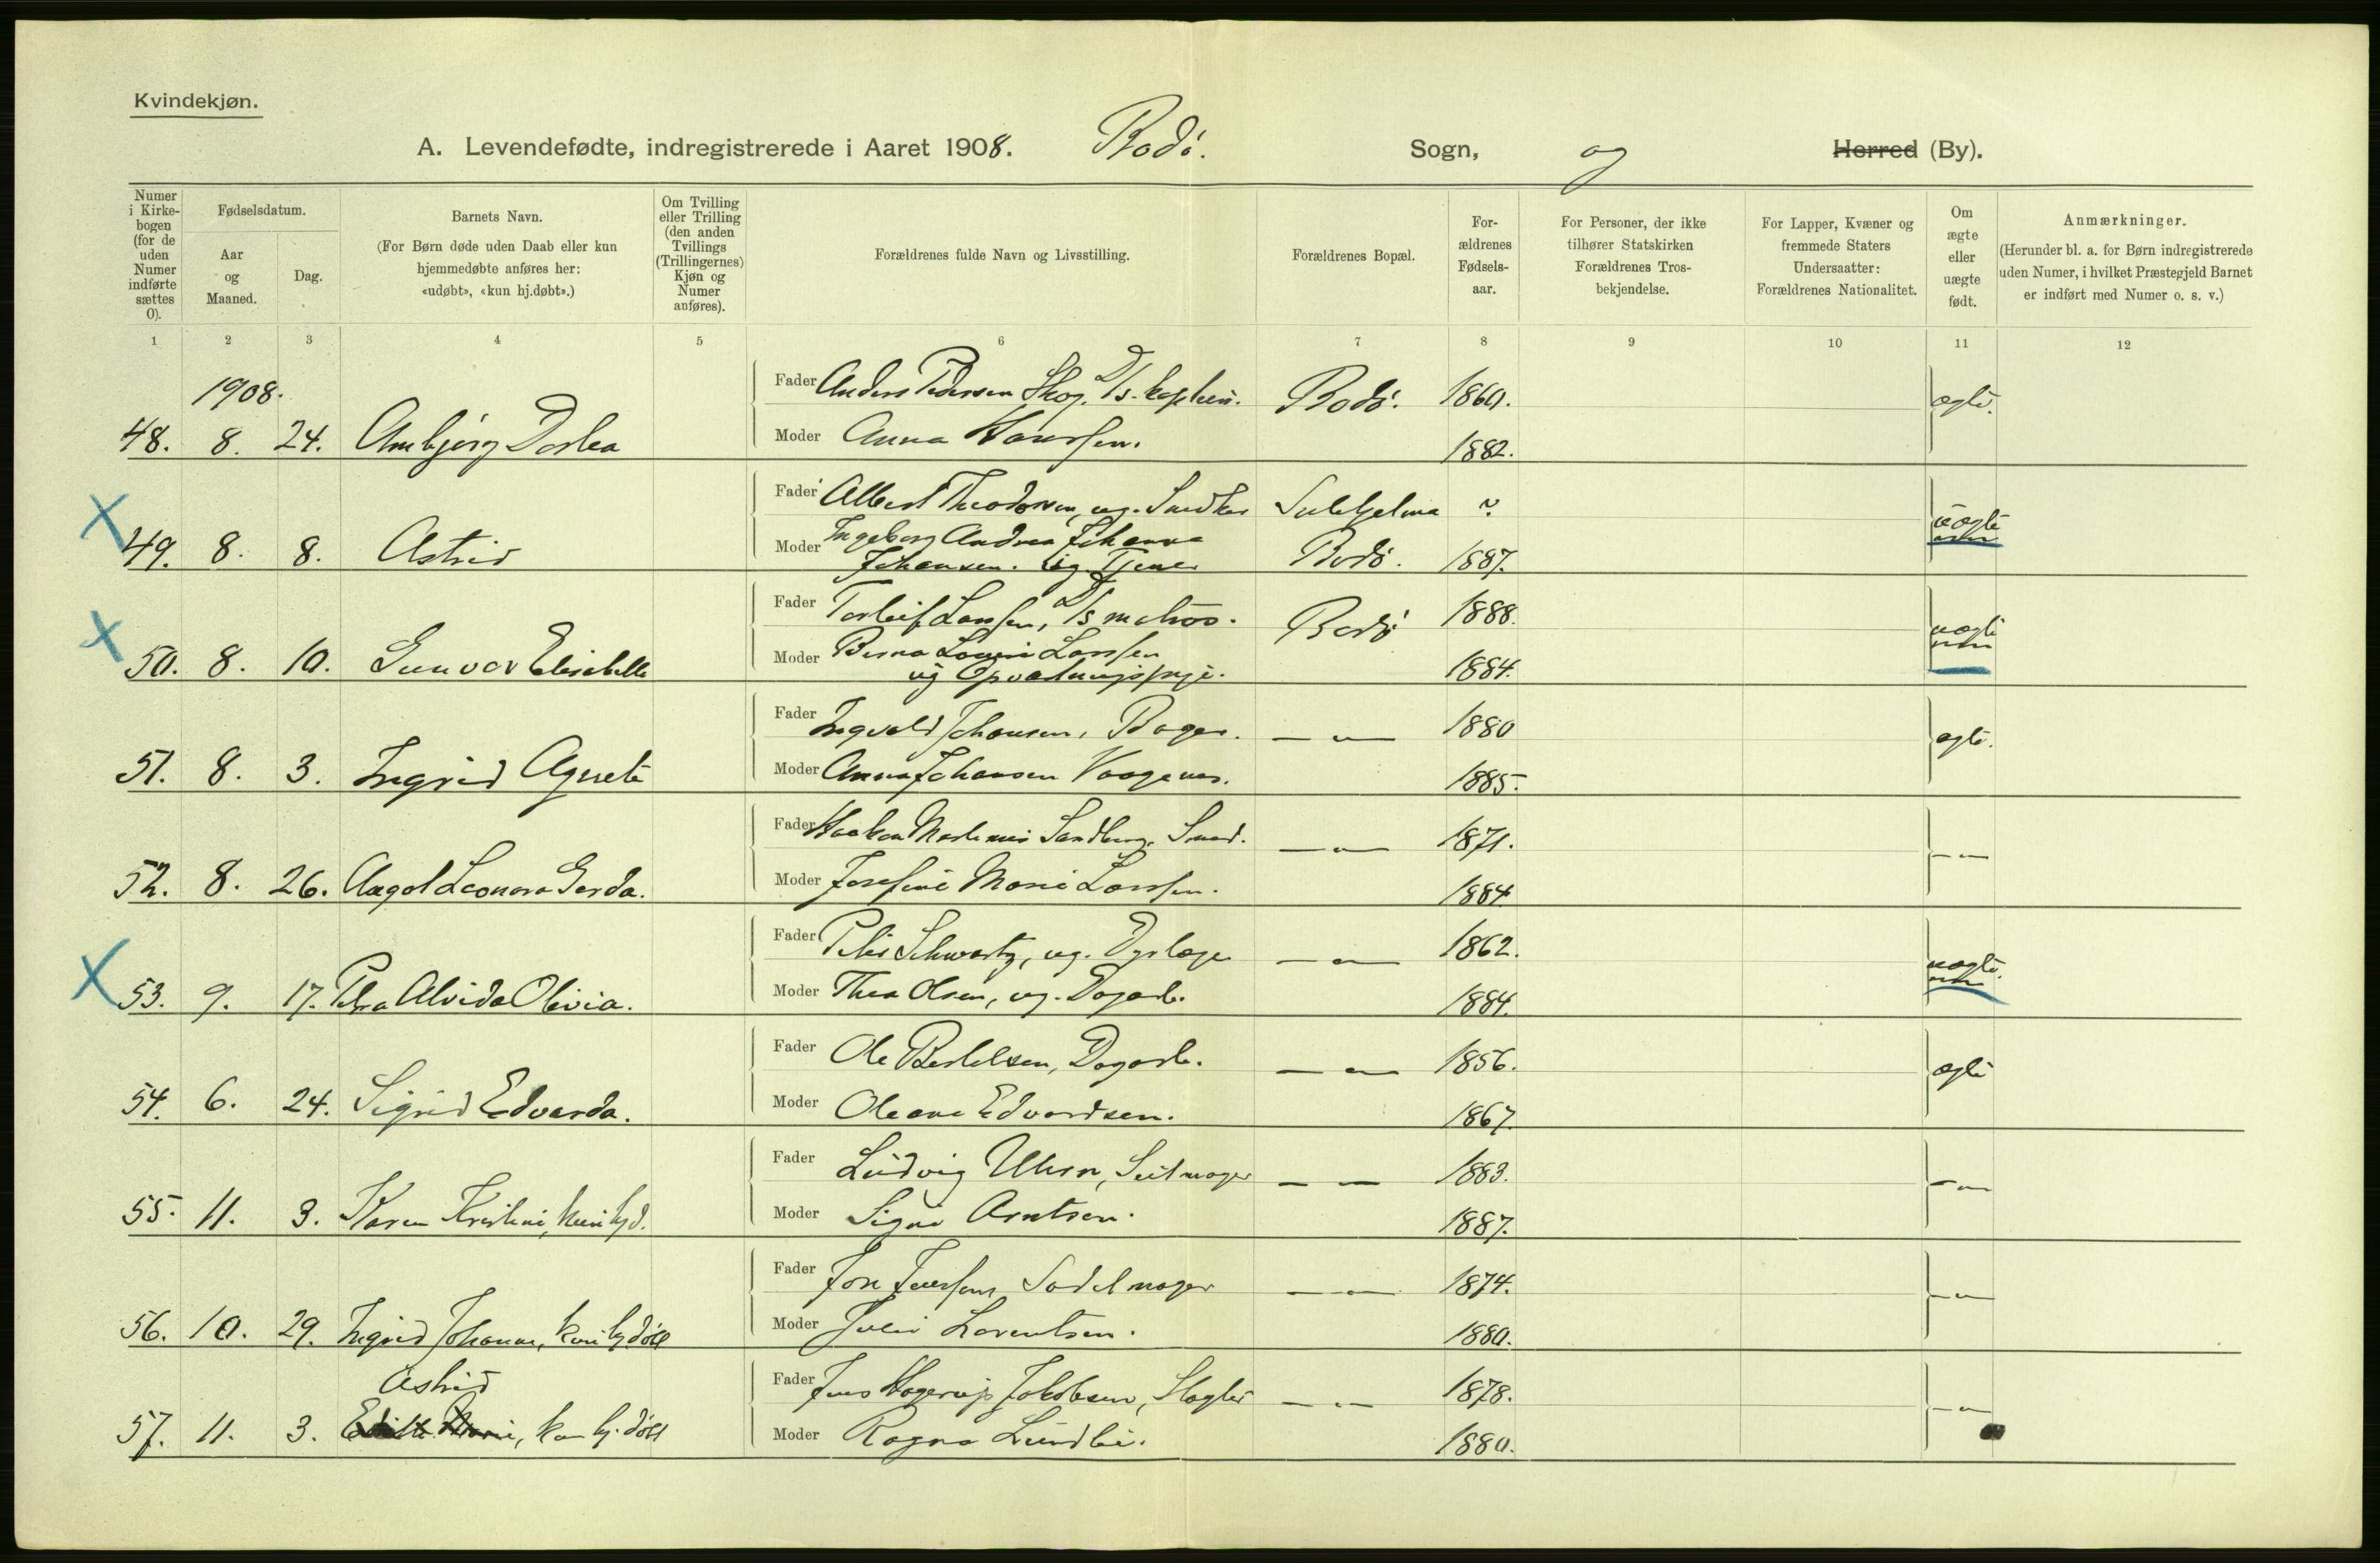 Kvindekjøn.
A. Levendefødte, indregistrerede i Aaret 1908. Bodø. Sogn, og Herred (By).
Numer i Kirke-bogen (for de uden Numer indførte sættes 0).
Fødselsdatum.
Aar og Maaned.
Dag.
Barnets Navn.
(For Børn døde uden Daab eller kun hjemmedøbte anføres her: «udøbt», «kun hj.døbt».)
Om Tvilling eller Trilling (den anden Tvillings (Trillingernes) Kjøn og Numer anføres).
Forældrenes fulde Navn og Livsstilling.
Forældrenes Bopæl.
For-ældrenes Fødsels-aar.
For Personer, der ikke tilhører Statskirken Forældrenes Tros-bekjendelse.
For Lapper, Kvæner og fremmede Staters Undersaatter: Forældrenes Nationalitet.
Om ægte eller uægte født.
Anmærkninger.
(Herunder bl. a. for Børn indregistrerede uden Numer, i hvilket Præstegjeld Barnet er indført med Numer o. s. v.)
1 2 3 4 5 6 7 8 9 10 11 12
1908.
Fader Anders Pedersen Skog, D/s. kaptein. Bodø. 1860. ægte.
48. 8. 24. Anbjørg Dorlea Moder Anna Hanssen. 1882.
Fader Albert Theodorsen, ug. Snedker Sulitjelma ?
X 49. 8. 8. Astrid Moder Ingeborg Andrea Johanna uægte
Johansen. ug. Tjener Bodø. 1887.
Fader Torleif Larssen, D/s matros. Bodø 1888.
X 50. 8. 10. Gunvor Elisabeth Moder Berna Lovise Larssen uægte
ug Opvartningspige. 1884.
Fader Ingvald Johansen, Bager. — " — 1880 ægte.
51. 8. 3. Ingrid Agnete Moder Anna Johansen Vaagenes. 1885.
Fader Haakon Martinius Sandberg, Smed. — " — 1871. — " —
52. 8. 26. Aagot Leonora Gerda. Moder Josefine Marie Larssen. 1884
Fader Peter Schwartz, ug. Dyrlæge — " — 1862. uægte.
X 53. 9. 17. Petra Alvida Olivia. Moder Thea Olsen, ug. Dagarb. 1884.
Fader Ole Bertelsen, Dagarb. — " — 1856. ægte
54. 6. 24. Sigrid Edvarda. Moder Oleane Edvardsen. 1867.
Fader Ludvig Uhren, Seilmager — — 1883. — " —
55. 11. 3. Karen Kristine, kun hjd. Moder Signe Arntsen. 1887.
Fader Jon Iverssen Sadelmager — " — 1874. — " —
56. 10. 29. Ingrid Johanne, kun hj døbt Moder Julie Lorentsen. 1880.
Astrid Fader Jens Hagerup Jakobsen, Slagter — " — 1878. — " —
57. 11. 3. Edith Marie, kun hj. døbt Moder Ragna Lundli. 1880.